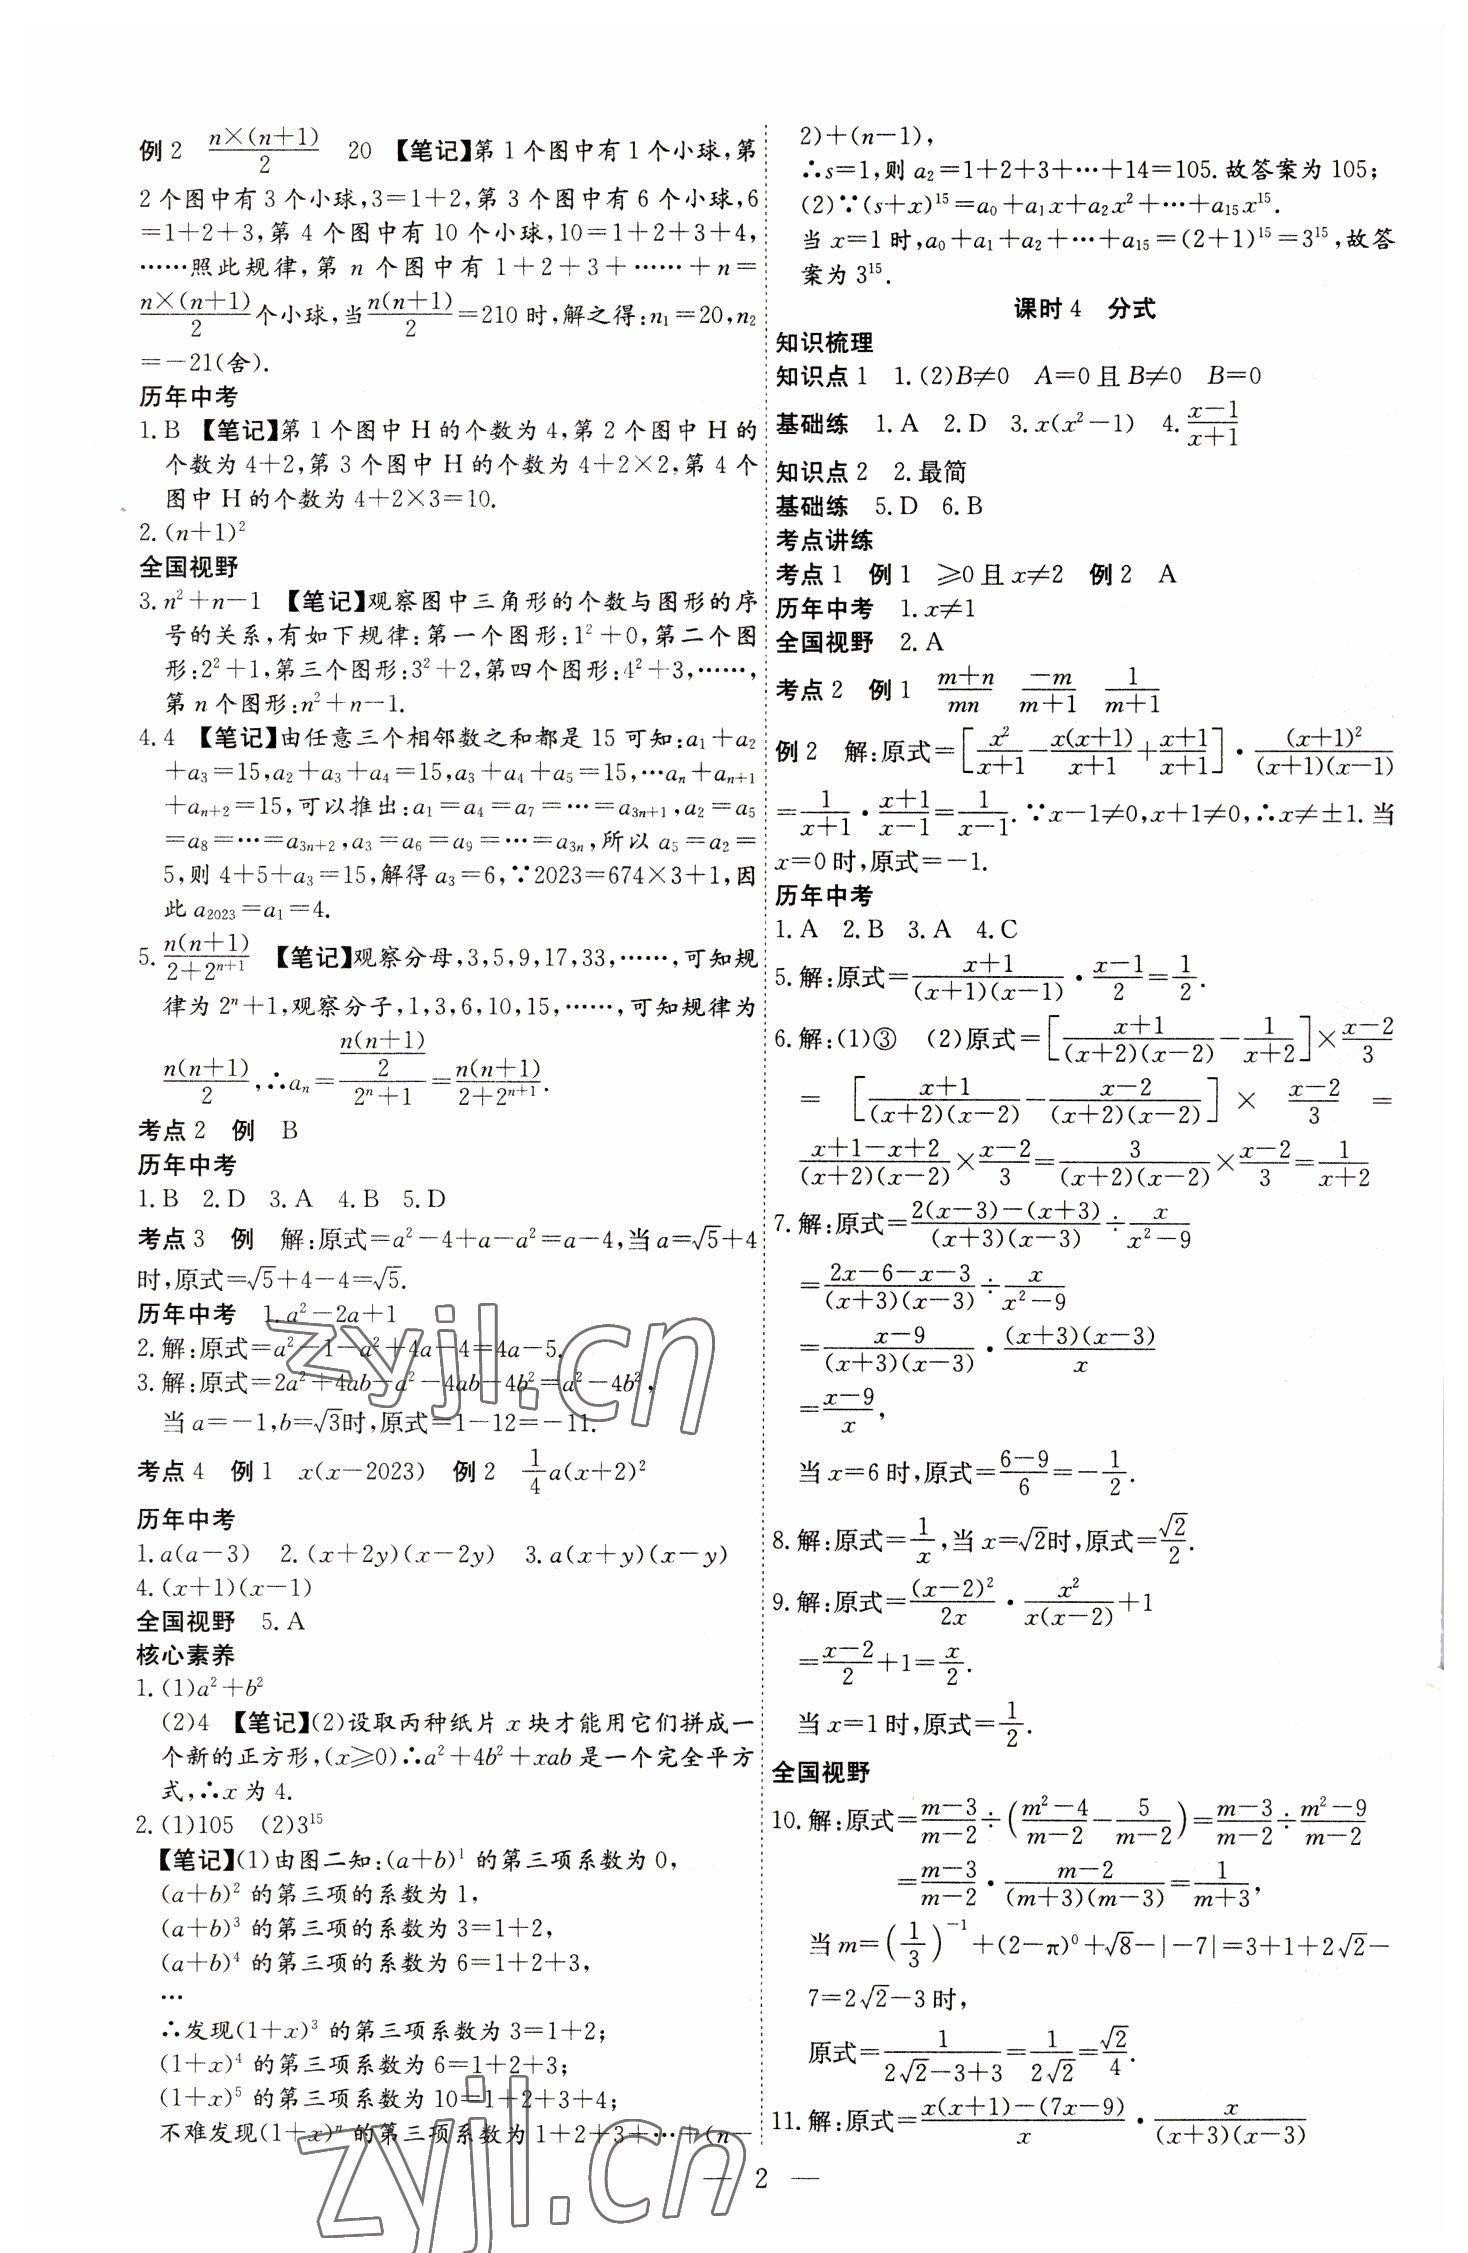 例2 n×(n+1)/2 20 【笔记】第1个图中有1个小球,第
2个图中有3个小球,3=1+2,第3个图中有6个小球,6
=1+2+3,第4个图中有10个小球,10=1+2+3+4,
……照此规律,第n个图中有1+2+3+……+n=
n×(n+1)/2个小球,当n(n+1)/2=210时,解之得:n₁=20,n₂
=-21(舍).
历年中考
1.B 【笔记】第1个图中H的个数为4,第2个图中H的
个数为4+2,第3个图中H的个数为4+2×2,第4个
图中H的个数为4+2×3=10.
2.(n+1)²
全国视野
3.n²+n-1 【笔记】观察图中三角形的个数与图形的序
号的关系,有如下规律:第一个图形:1²+0,第二个图
形:2²+1,第三个图形:3²+2,第四个图形:4²+3,……,
第n个图形:n²+n-1.
4.4 【笔记】由任意三个相邻数之和都是15可知:a₁+a₂
+a₃=15,a₂+a₃+a₄=15,a₃+a₄+a₅=15,…aₙ+aₙ₊₁
+aₙ₊₂=15,可以推出:a₁=a₄=a₇=…=a₃ₙ₊₁,a₂=a₅
=a₈=…=a₃ₙ₊₂,a₃=a₆=a₉=…=a₃ₙ,所以a₅=a₂=
5,则4+5+a₃=15,解得a₃=6,∵2023=674×3+1,因
此a₂₀₂₃=a₁=4.
5.n(n+1)/(2+2ⁿ⁺¹) 【笔记】观察分母,3,5,9,17,33,……,可知规
律为2ⁿ+1,观察分子,1,3,6,10,15,……,可知规律为
n(n+1)/2,∴aₙ=(n(n+1)/2)/(2ⁿ+1)=n(n+1)/(2+2ⁿ⁺¹).
考点2 例 B
历年中考
1.B 2.D 3.A 4.B 5.D
考点3 例 解:原式=a²-4+a-a²=a-4,当a=√5+4
时,原式=√5+4-4=√5.
历年中考 1.a²-2a+1
2.解:原式=a²-1-a²+4a-4=4a-5.
3.解:原式=2a²+4ab-a²-4ab-4b²=a²-4b²,
当a=-1,b=√3时,原式=1-12=-11.
考点4 例1 x(x-2023) 例2 1/4a(x+2)²
历年中考
1.a(a-3) 2.(x+2y)(x-2y) 3.a(x+y)(x-y)
4.(x+1)(x-1)
全国视野 5.A
核心素养
1.(1)a²+b²
(2)4 【笔记】(2)设取丙种纸片x块才能用它们拼成一
个新的正方形,(x≥0)∴a²+4b²+xab是一个完全平方
式,∴x为4.
2.(1)105 (2)3¹⁵
【笔记】(1)由图二知:(a+b)¹的第三项系数为0,
(a+b)²的第三项的系数为1,
(a+b)³的第三项的系数为3=1+2,
(a+b)⁴的第三项的系数为6=1+2+3,
…
∴发现(1+x)³的第三项系数为3=1+2;
(1+x)⁴的第三项系数为6=1+2+3;
(1+x)⁵的第三项系数为10=1+2+3+4;
不难发现(1+x)ⁿ的第三项系数为1+2+3+…+(n-
2)+(n-1),
∴s=1,则a₂=1+2+3+…+14=105.故答案为105;
(2)∵(s+x)¹⁵=a₀+a₁x+a₂x²+…+a₁₅x¹⁵.
当x=1时,a₀+a₁+a₂+…+a₁₅=(2+1)¹⁵=3¹⁵,故答
案为3¹⁵.
课时4 分式
知识梳理
知识点1 1.(2)B≠0 A=0且B≠0 B=0
基础练 1.A 2.D 3.x(x²-1) 4.(x-1)/(x+1)
知识点2 2.最简
基础练 5.D 6.B
考点讲练
考点1 例1 ≥0且x≠2 例2 A
历年中考 1.x≠1
全国视野 2.A
考点2 例1 (m+n)/mn -m/(m+1) 1/(m+1)
例2 解:原式=[x²/(x+1)-x(x+1)/(x+1)+(x+1)/(x+1)]·(x+1)²/((x+1)(x-1))
=1/(x+1)·(x+1)/(x-1)=1/(x-1).∵x-1≠0,x+1≠0,∴x≠±1.当
x=0时,原式=-1.
历年中考
1.A 2.B 3.A 4.C
5.解:原式=(x+1)/((x+1)(x-1))·(x-1)/2=1/2.
6.解:(1)③ (2)原式=[(x+1)/((x+2)(x-2))-1/(x+2)]×(x-2)/3
=[(x+1)/((x+2)(x-2))-(x-2)/((x+2)(x-2))]×(x-2)/3=
(x+1-x+2)/((x+2)(x-2))×(x-2)/3=3/((x+2)(x-2))×(x-2)/3=1/(x+2)
7.解:原式=(2(x-3)-(x+3))/((x+3)(x-3))÷x/(x²-9)
=(2x-6-x-3)/((x+3)(x-3))÷x/(x²-9)
=(x-9)/((x+3)(x-3))·((x+3)(x-3))/x
=(x-9)/x,
当x=6时,原式=(6-9)/6=-1/2.
8.解:原式=1/x,当x=√2时,原式=√2/2.
9.解:原式=(x-2)²/2x·x²/(x(x-2))+1
=(x-2)/2+1=x/2.
当x=1时,原式=1/2.
全国视野
10.解:原式=(m-3)/(m-2)÷((m²-4)/(m-2)-5/(m-2))=(m-3)/(m-2)÷(m²-9)/(m-2)
=(m-3)/(m-2)·(m-2)/((m+3)(m-3))=1/(m+3),
当m=(1/3)⁻¹+(2-π)⁰+√8-|-7|=3+1+2√2-
7=2√2-3时,
原式=1/(2√2-3+3)=1/(2√2)=√2/4.
11.解:原式=(x(x+1)-(7x-9))/x·x/((x+3)(x-3))
— 2 —
zyjl.cn
zyjl.cn